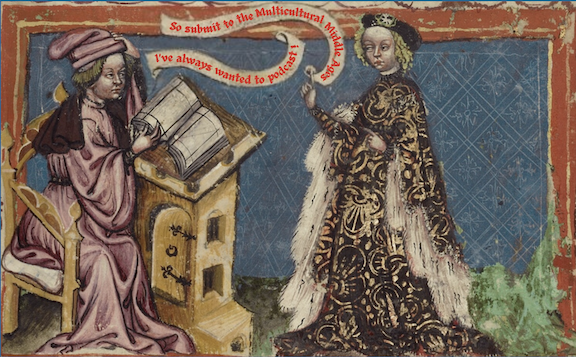 So submit to the Multicultural Middle Ages
I've always wanted to podcast!